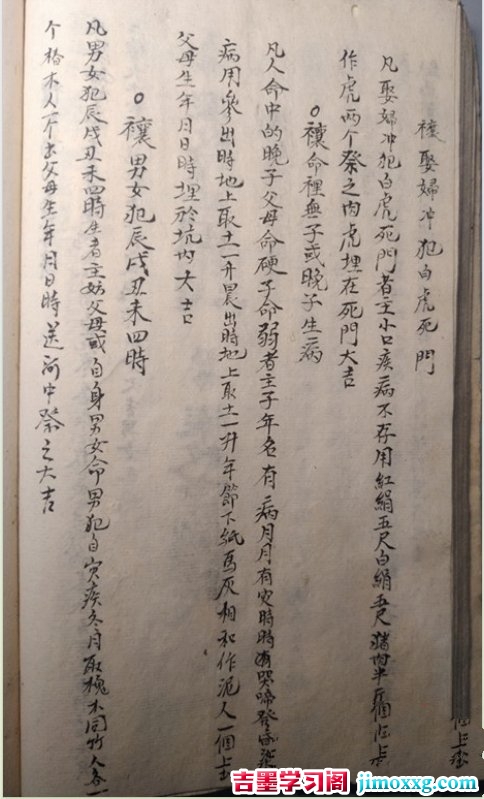 禳娶婦冲犯白虎死門
凡娶婦冲犯白虎死門者主小口疾病不存用紅絹五尺白絹五尺猪肉半斤
作虎两个祭之肉虎埋在死門大吉
禳命裡無子或晚子生病
凡人命中的晚子父母命硬子命弱者主子年年有病月月有灾時時有哭啼
病用參出時地上取土一升晨出時地上取土一升年節下紙馬灰相和作泥人一個上
父母生年月日時埋於坑内大吉
禳男女犯辰戌丑未四時
凡男女犯辰戌丑未四時生者主妨父母或自身男女命男犯自疾冬月取槐木同竹人各一
个木人个父母生年月日時送河中祭之大吉
吉墨学习阁 jimoxxg.com